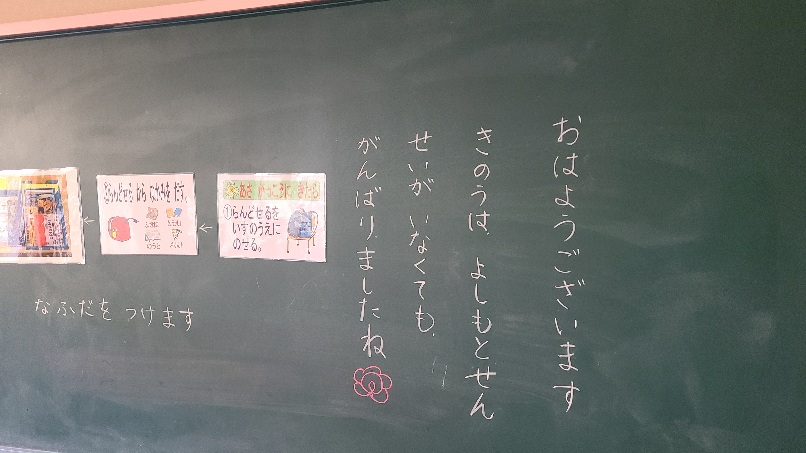 おはようございます
きのうは、よしもとせん
せいが いなくても、
がんばりましたね
あさ がっこうに きたら
①らんどせるを
いすのうえに
のせる。
②らんどせる から なかみを だす。
なふだを つけます